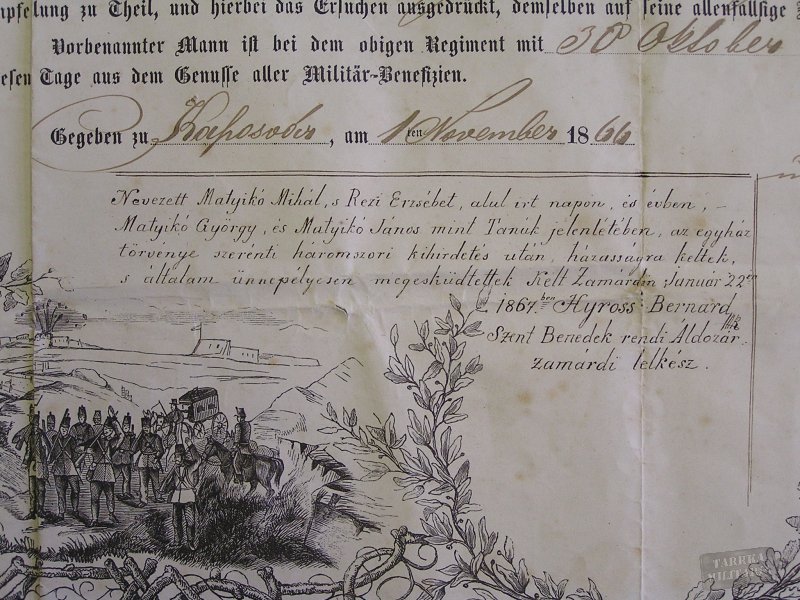 mpfelung zu Theil, und hierbei das Ersuchen ausgedrückt, demselben auf seine allenfällsige
Vorbenannter Mann ist bei dem obigen Regiment mit 30 Oktober
esen Tage aus dem Genusse aller Militär-Benefizien.
Gegeben zu Kaposvár, am 1ten November 1866
Nevezett Matyikó Mihál, s Rezi Erzsébet, alul irt napon, és évben, –
Matyikó György, és Matyikó János mint Tanúk jelenlétében, az egyház
törvénye szerénti háromszori kihirdetés után, házasságra keltek,
s általam ünnepélyesen megesküdtettek Kelt Zamárdin Januar 22én
1867.ben Hyross Bernard
Szent Benedek rendi Áldozár
zamárdi lelkész.
TARRKA